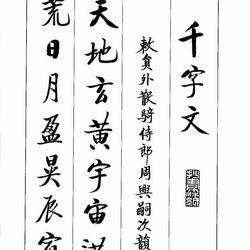 千字文
敕員外散騎侍郎周興嗣次韻
天地玄黃宇宙洪
荒日月盈昃辰宿